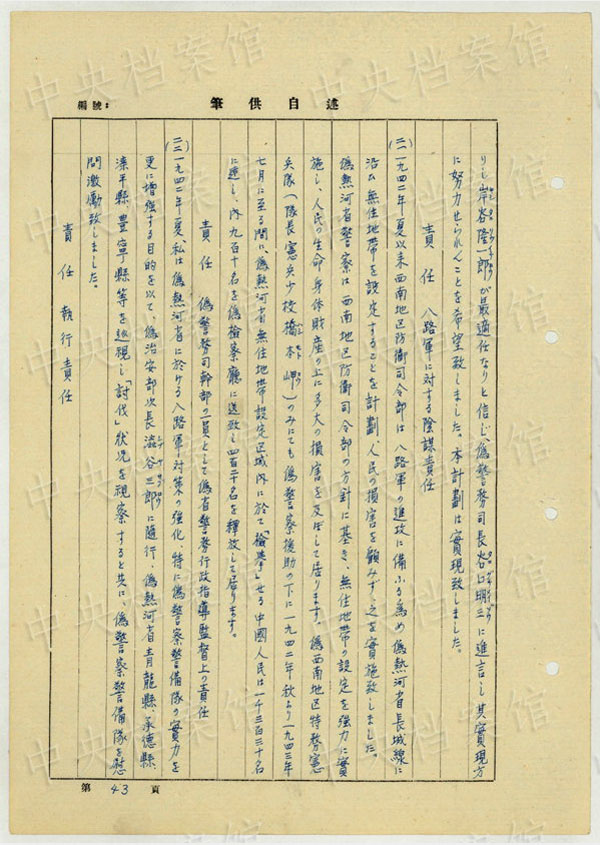 編號：
筆供自述
りし岸谷隆一郎が最適任なりと信じ、偽警務司長谷口明三に進言し其實現方
に努力せられんことを希望致しました。本計劃は實現致しました。
責任 八路軍に対する陰謀責任
(二)一九四二年夏以来西南地区防衛司令部は八路軍の進攻に備ふる為め偽熱河省長城線に
沿ひ無住地帯を設定することを計劃、人民の損害を顧みず、之を實施致しました。
偽熱河省警察は西南地区防衛司令部の方針に基き、無住地帯の設定を强力に實
施し、人民の生命身体財産の上に多大の損害を及ぼして居ります。偽西南地区特務憲
兵隊（隊長憲兵少校橋本岬）のみにても偽警察援助の下に一九四二年秋より一九四三年
七月に至る間に、偽熱河省無住地帯設定区域内に於て「檢挙」せる中國人民は一千三百三十名
に達し、内九百十名を偽檢察廳に送致し四百二十名を釋放して居ります。
責任 偽警務司幹部の一員として偽省警務行政指導監督上の責任
(三)一九四二年夏、私は偽熱河省に於ける八路軍対策の强化特に偽警察警備隊の實力を
更に增强する目的を以て、偽治安部次長澁谷三郎に隨行、偽熱河省青龍縣、承德縣、
滦平縣豊寧縣等を巡視し「討伐」狀况を視察すると共に、偽警察警備隊を慰
問激勵致しました。
責任 執行責任
第 43 頁
中央档案馆